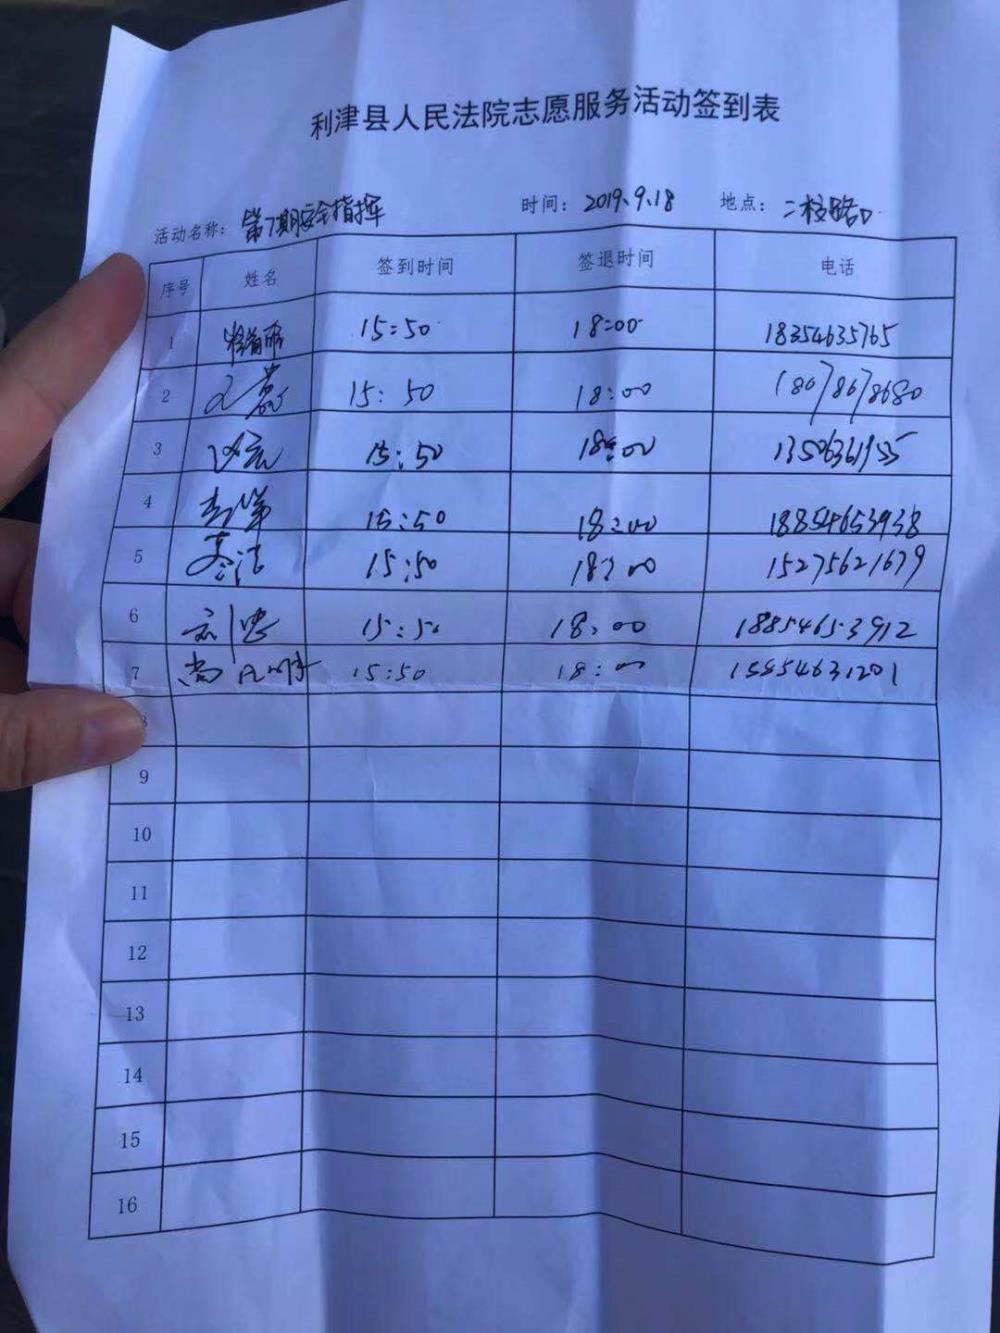 利津县人民法院志愿服务活动签到表
活动名称： 第7期安全指挥 时间： 2019.9.18 地点： 二校路口
序号 姓名 签到时间 签退时间 电话
1 15:50 18:00 18354635765
2 15:50 18:00 18678678680
3 15:50 18:00
4 15:50 18:00 18854653938
5 李洁 15:50 18:00 15275621679
6 15:50 18:00 18854653912
7 15:50 18:00 15854631201
8
9
10
11
12
13
14
15
16